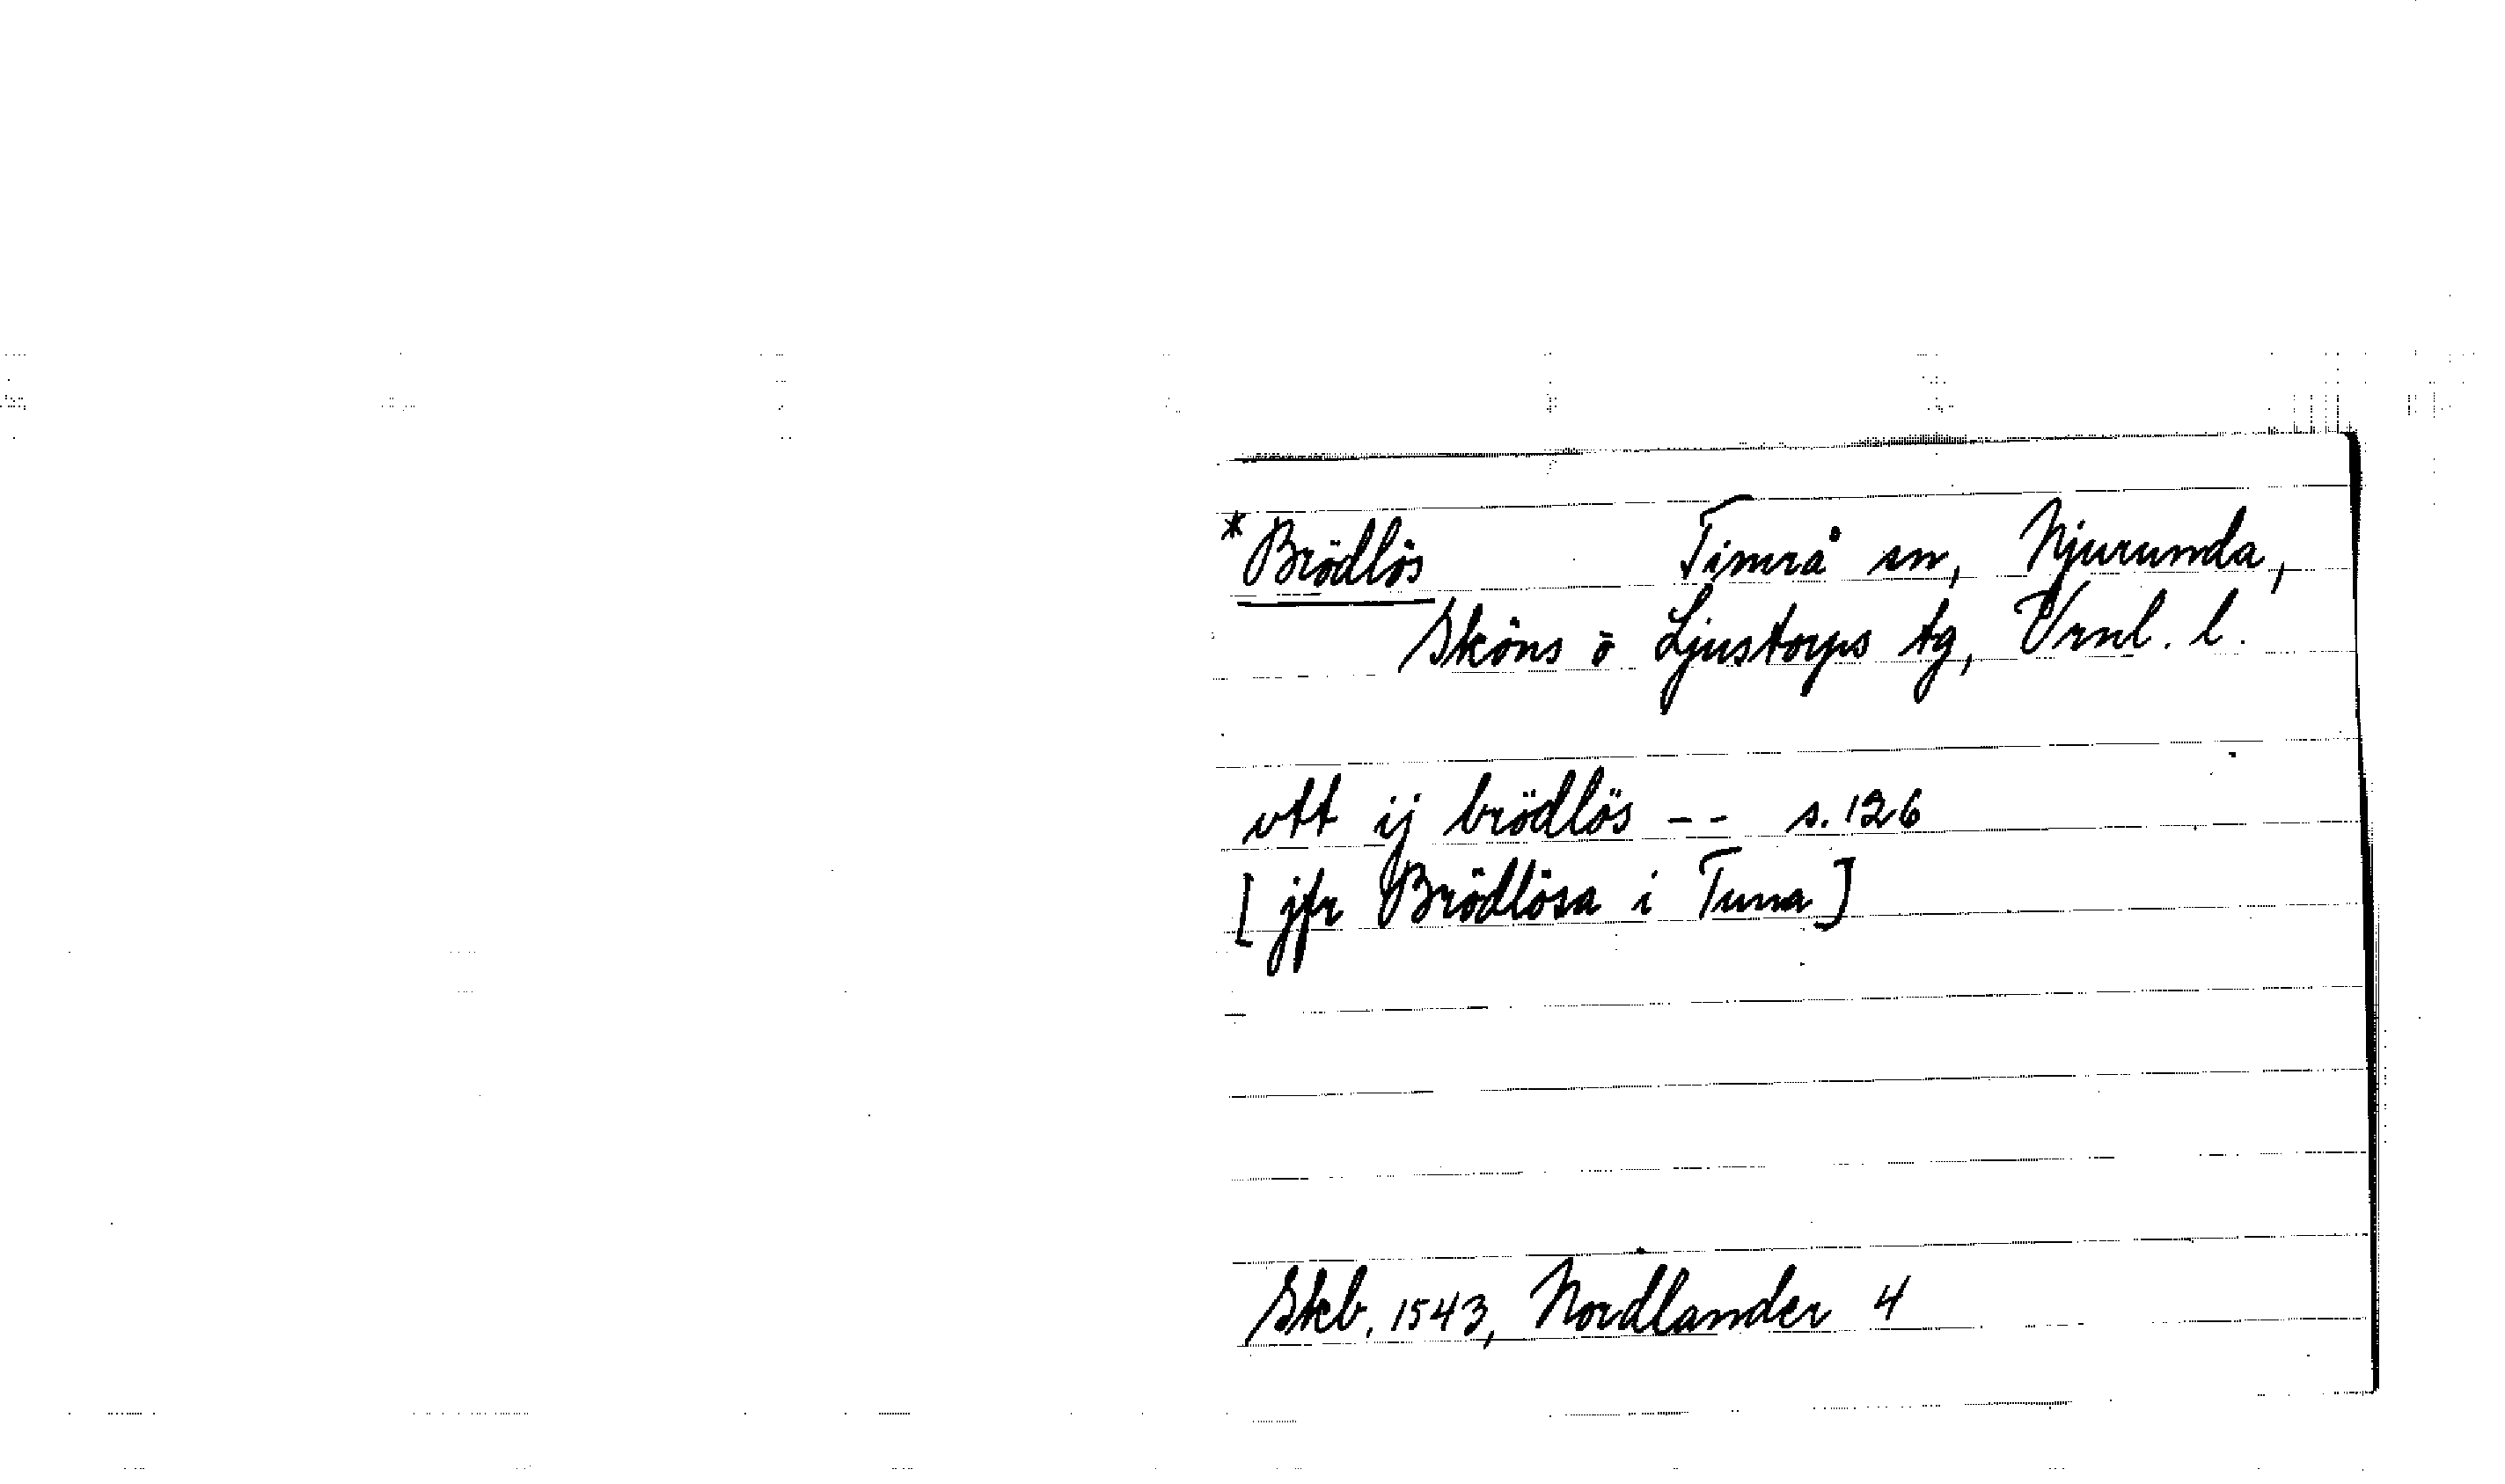 *Brödlös Timrå sn, Njurunda,
Sköns o Ljustorps tg, Vrnl. l.
vtt ij brödlös -- s. 126
[jfr Brödlösa i Tuna]
Skb. 1543, Nordlander 4